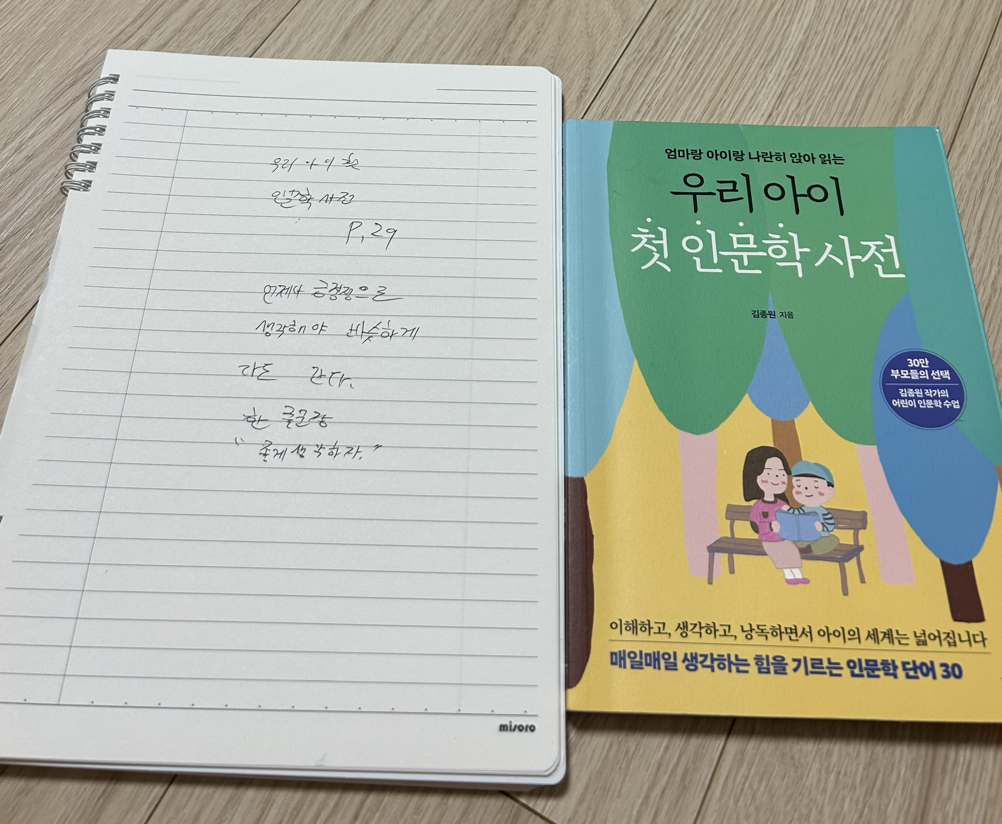 우리 아이 첫
인문학 사전
P. 29
언제나 긍정적으로
생각해야 비슷하게
라도 간다.
한 줄문장
"좋게 생각하자."
misoro
엄마랑 아이랑 나란히 앉아 읽는
우리 아이
첫 인문학 사전
김종원 지음
30만
부모들의 선택
김종원 작가의
어린이 인문학 수업
이해하고, 생각하고, 낭독하면서 아이의 세계는 넓어집니다
매일매일 생각하는 힘을 기르는 인문학 단어 30